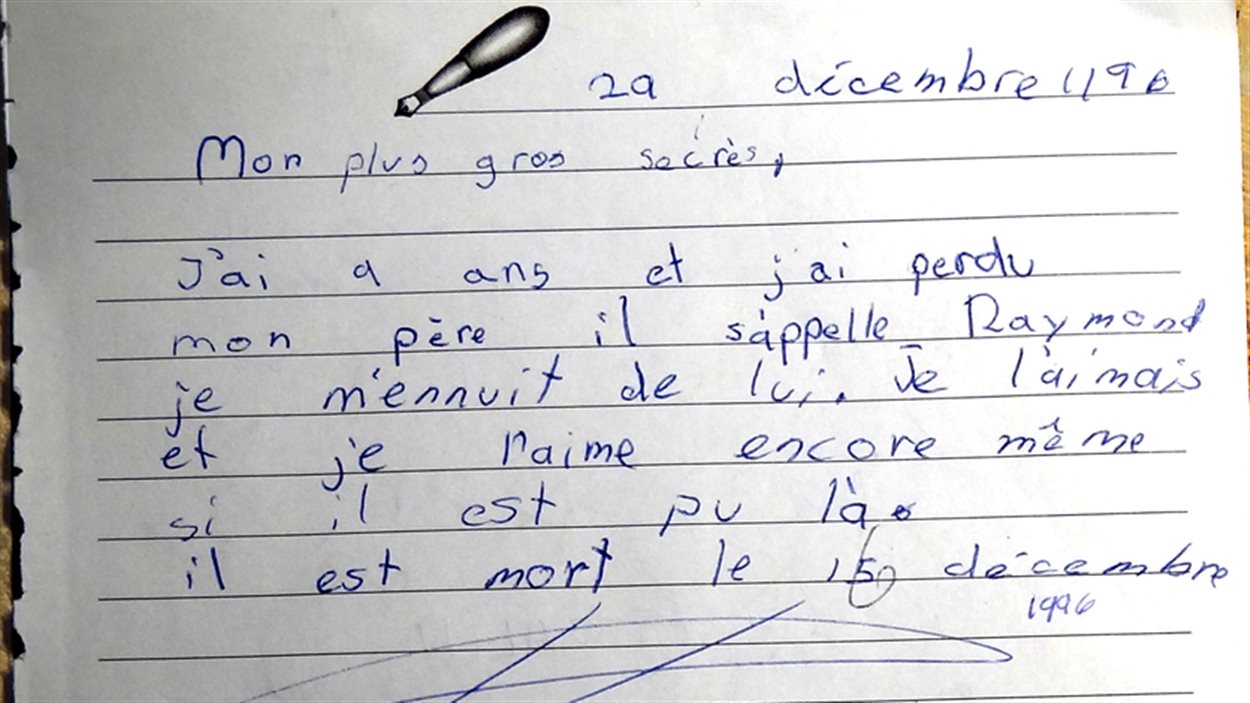 29 décembre 1996
Mon plus gros secrès,
J'ai 9 ans et j'ai perdu
mon père il s'appelle Raymond
je m'ennuit de lui. Je l'aimais
et je l'aime encore même
si il est pu là.
il est mort le 15 décembre
1996